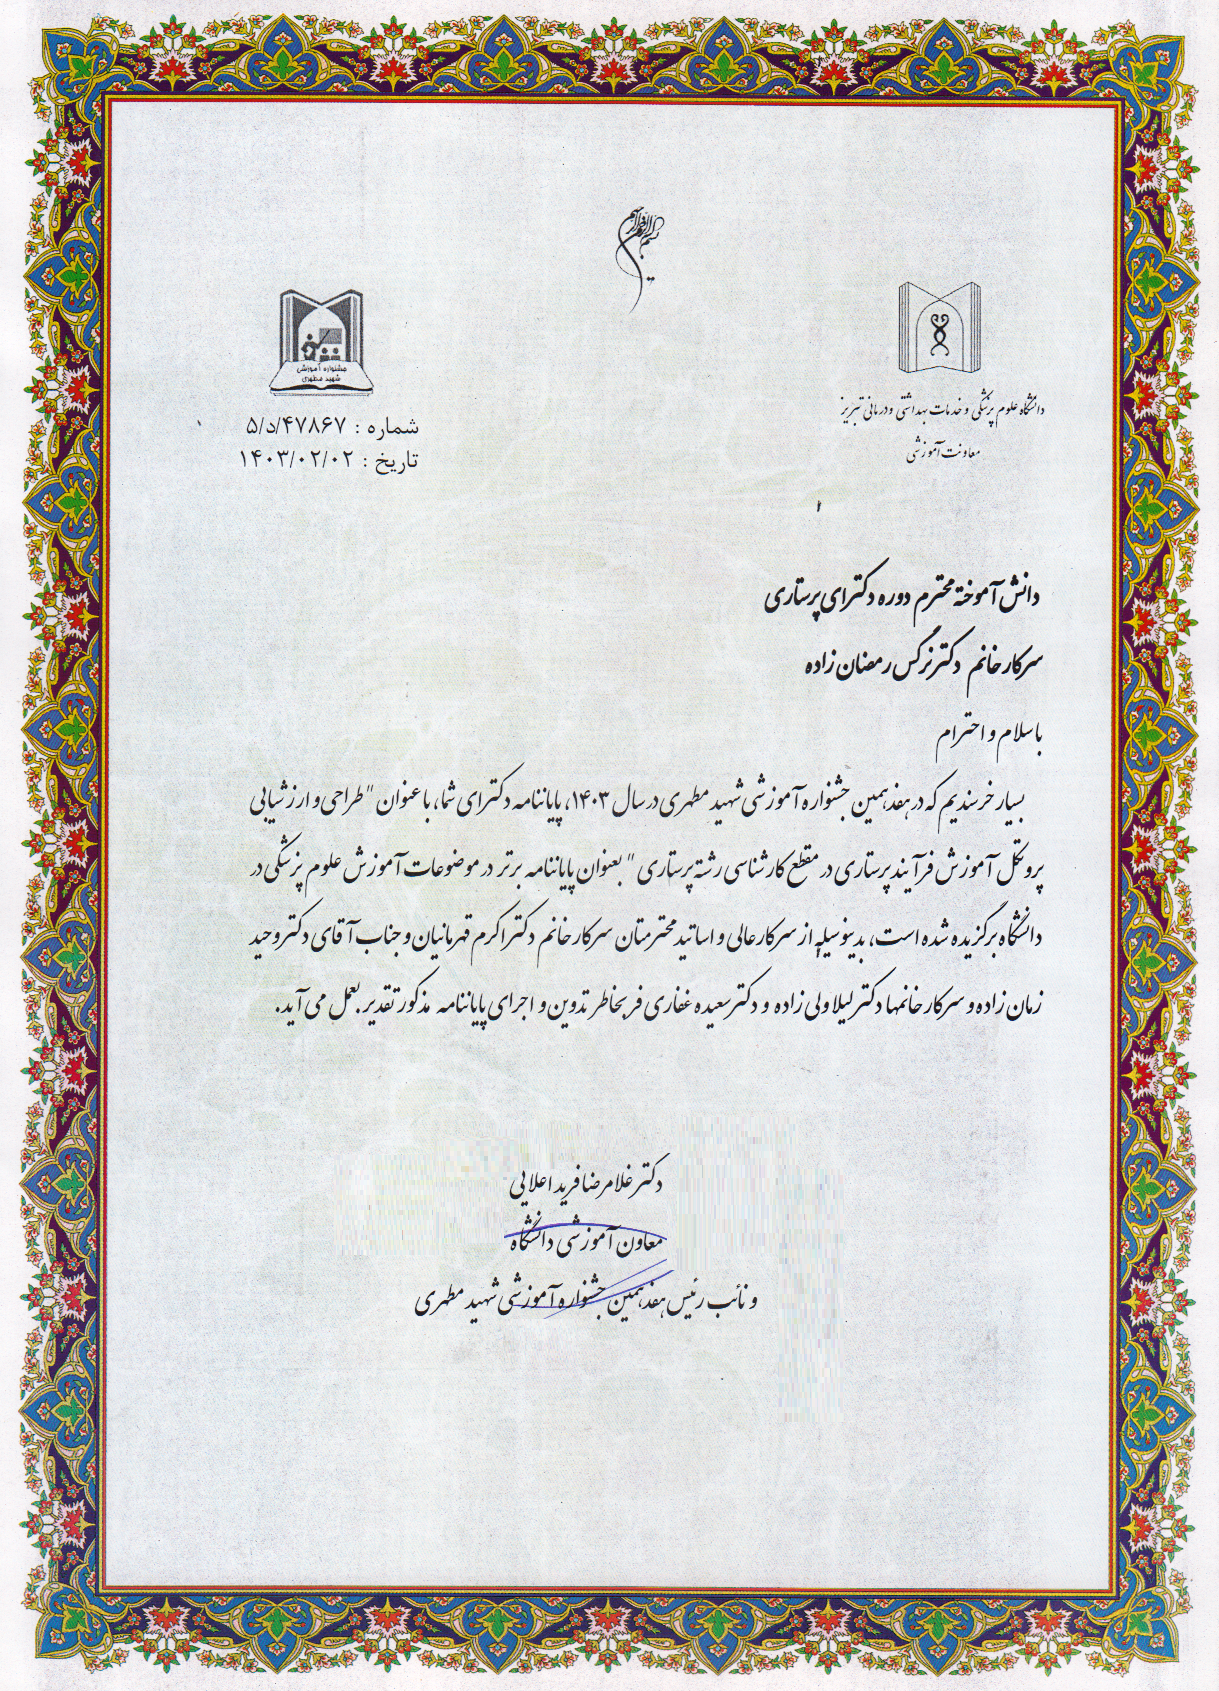 بسم الله الرحمن الرحیم
دانشگاه علوم پزشکی و خدمات بهداشتی و درمانی تبریز
معاونت آموزشی
جشنواره آموزشی
شهید مطهری
شماره : ۵/د/۴۷۸۶۷
تاریخ : ۱۴۰۳/۰۲/۰۲
دانش آموخته محترم دوره دکترای پرستاری
سرکار خانم دکتر نرگس رمضان زاده
با سلام و احترام
بسیار خرسندیم که در هفدهمین جشنواره آموزشی شهید مطهری در سال ۱۴۰۳، پایاننامه دکترای شما، با عنوان " طراحی و ارزشیابی
پروتکل آموزش فرآیند پرستاری در مقطع کارشناسی رشته پرستاری " بعنوان پایاننامه برتر در موضوعات آموزش علوم پزشکی در
دانشگاه برگزیده شده است، بدینوسیله از سرکارعالی و اساتید محترمتان سرکار خانم دکتر اکرم قهرمانیان و جناب آقای دکتر وحید
زمان زاده و سرکار خانمها دکتر لیلا ولی زاده و دکتر سعیده غفاری فر بخاطر تدوین و اجرای پایاننامه مذکور تقدیر بعمل می آید.
دکتر غلامرضا فرید اعلایی
معاون آموزشی دانشگاه
و نائب رئیس هفدهمین جشنواره آموزشی شهید مطهری